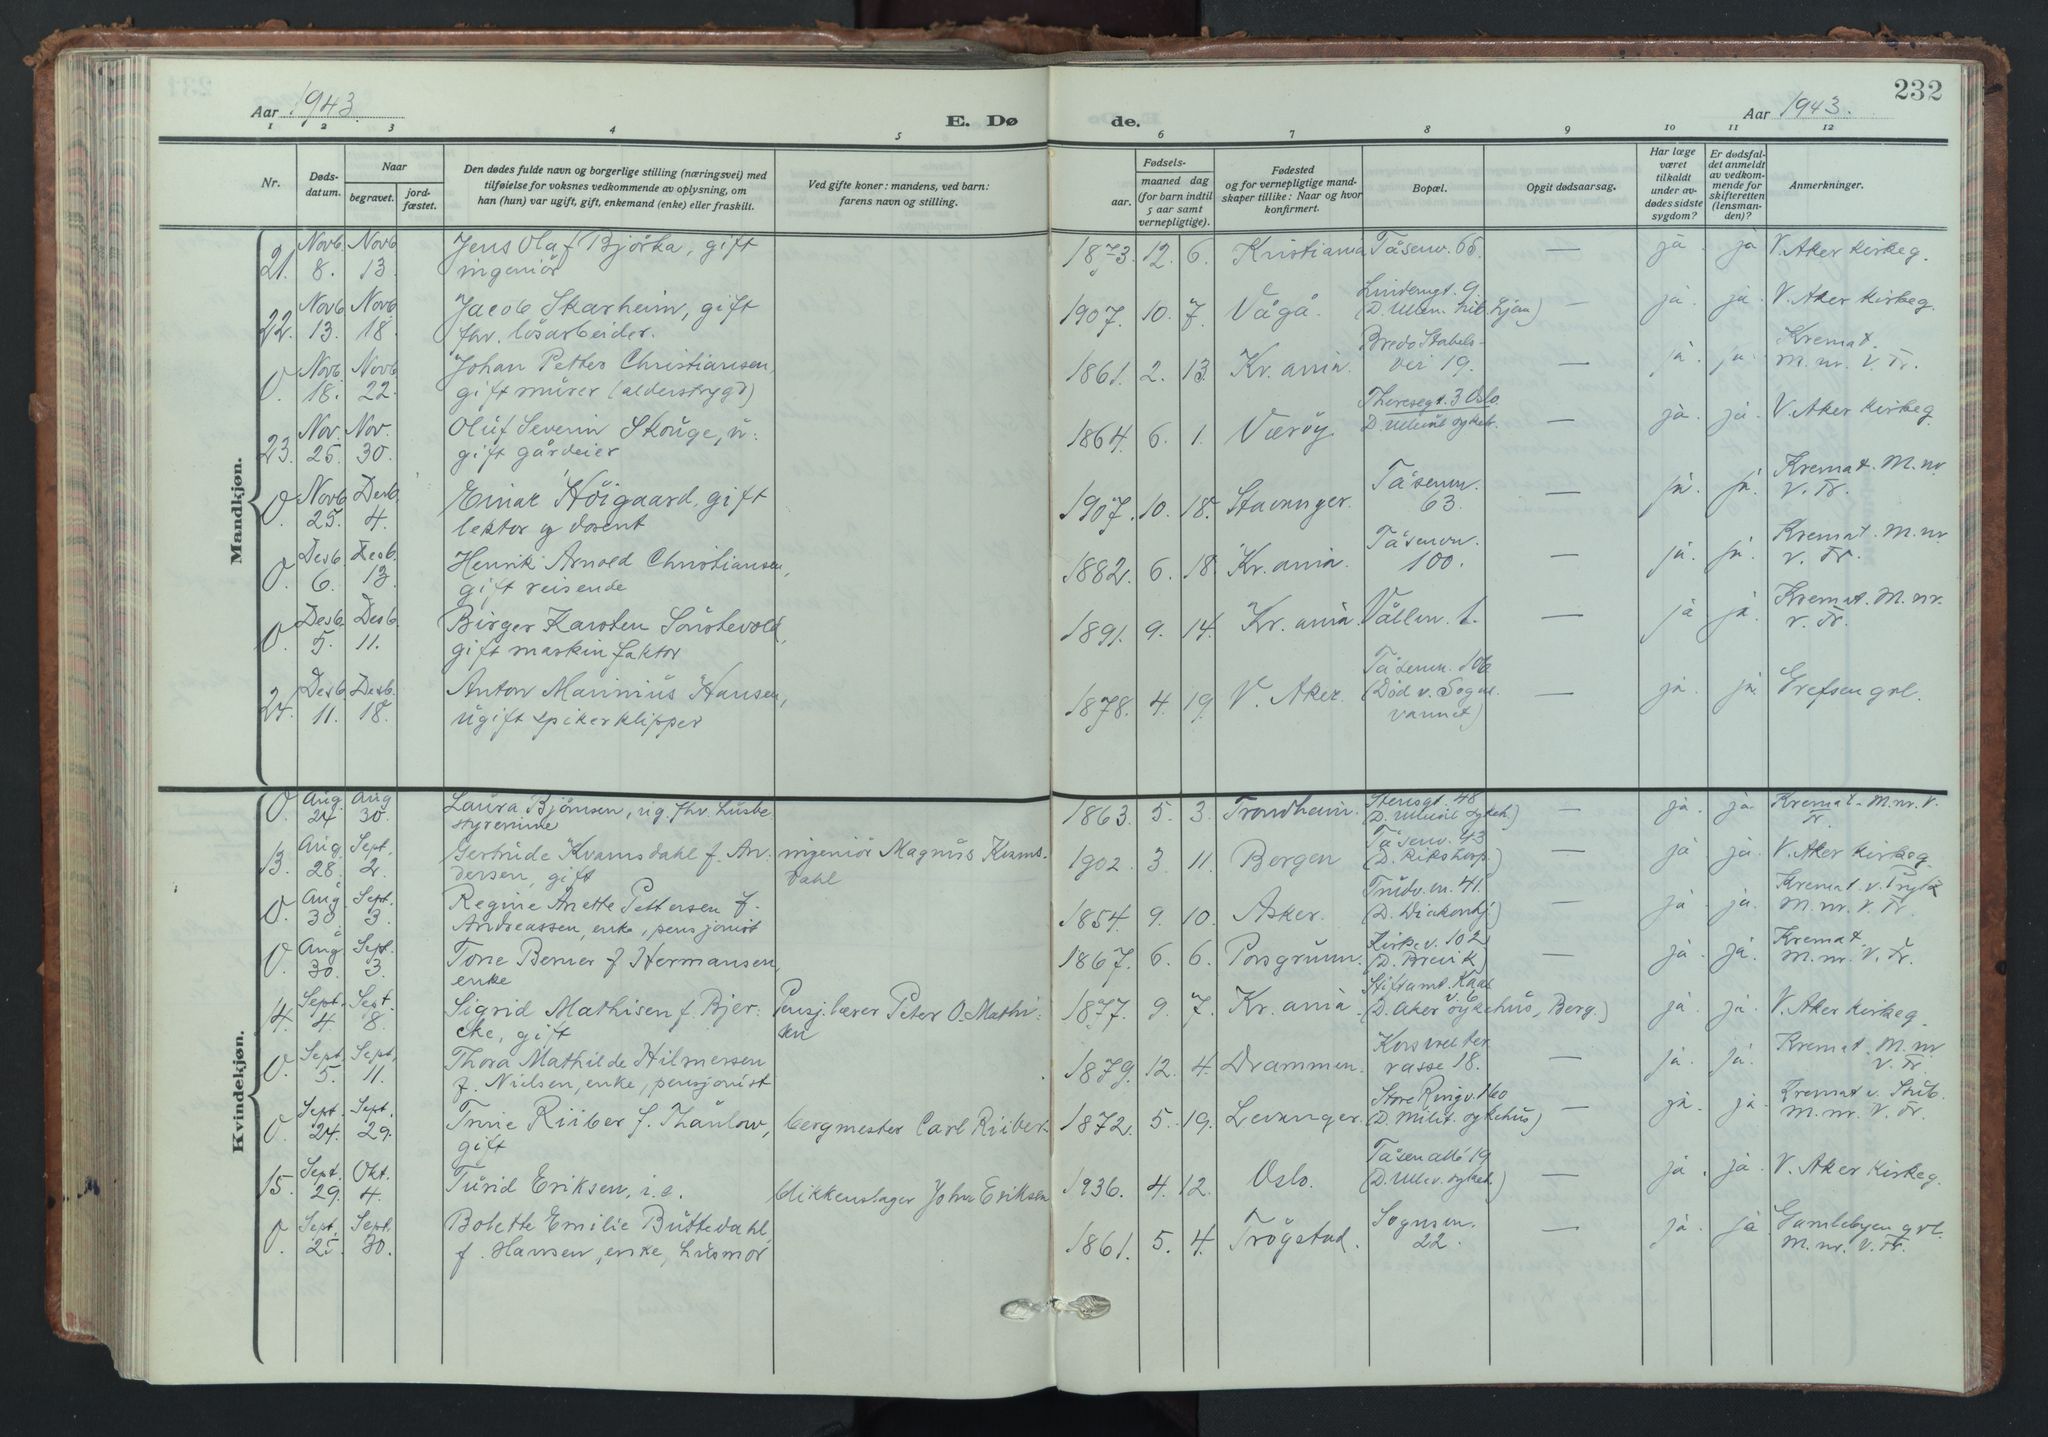 232
Aar 1943. E. Dø de. Aar 1943.
1 2 3 4 5 6 7 8 9 10 11 12
Nr.
Døds-
datum.
Naar
begravet.
jord-
fæstet.
Den dødes fulde navn og borgerlige stilling (næringsvei) med
tilføielse for voksnes vedkommende av oplysning, om
han (hun) var ugift, gift, enkemand (enke) eller fraskilt.
Ved gifte koner: mandens, ved barn:
farens navn og stilling.
Fødsels-
aar.
maaned dag
(for barn indtil
5 aar samt
vernepligtige).
Fødested
og for vernepligtige mand-
skaper tillike: Naar og hvor
konfirmert.
Bopæl.
Opgit dødsaarsag.
Har læge
været
tilkaldt
under av-
dødes sidste
sygdom?
Er dødsfal-
det anmeldt
av vedkom-
mende for
skifteretten
(lensman-
den)?
Anmerkninger.
Mandkjøn.
21. Novb. 8. Novb. 13. Jens Olaf Bjørka, gift
ingeniør
1873. 12. 6. Kristiania Tåsenv. 65. — ja ja V. Aker kirkeg.
22. Novb. 13. Novb. 18. Jacob Skarheim, gift
fhv. løsarbeider.
1907. 10. 7. Vågå. — ja ja. V. Aker kirkeg.
0. Novb. 18. Novb. 22. Johan Petter Christiansen,
gift murer (alderstrygd)
1861. 2. 13. Kr.ania. Bredo Stabels-
vei 19. — ja. ja. Kremat.
M.nr. V. Tr.
23. Nov. 25. Nov. 30. Oluf Severin Skouge, u-
gift gårdeier
1864. 6. 1. Værøy. Theresegt. 3 Oslo
D. Ullevål sykeh. — ja. ja. V. Aker kirkeg.
0. Novb. 25. Desb. 4. Einar Høigaard, gift
lektor og dosent
1907. 10. 18. Stavanger. Tåsenv.
63. — ja. ja. Kremat. M.nr
V. Tr.
0. Desb. 6. Desb. 13. Henrik Arnold Christiansen,
gift reisende
1882. 6. 18. Kr.ania. Tåsenvn.
100. — ja. ja. Kremat. M.nr
V. Tr.
0. Desb. 5. Desb. 11. Birger Karsten Sønstevold,
gift maskinfaktor
1891. 9. 14. Kr.ania Vallen 1. — ja ja. Kremat. M.nr.
V. Tr.
24. Desb. 11. Desb. 18. Anton Marinius Hansen,
ugift spikerklipper
1878. 4. 19. V. Aker. Tåsenvn. 106
(Død v. Sogns-
vannet) — ja. ja. Grefsen grl.
Kvindekjøn.
0. Aug. 24 Aug 30. Laura Bjørnsen, ug. fhv. husbe-
styrerinne
1863. 5. 3. Trondheim. Stensgt. 48
(D. Ullevål sykeh.) — ja. ja. Kremat. M.nr. V.
Tr.
13. Aug. 28. Sept. 2. Gertrude Kvamsdahl f. An-
dersen, gift
ingeniør Magnus Kvams-
dahl
1902. 3. 11. Bergen Tåsenv. 43
(D. Rikshosp.) — ja ja. V. Aker kirkeg.
0. Aug. 30. Sept. 3. Regine Anette Pettersen f.
Andreassen, enke, pensjonist
1854. 9. 10. Asker. 41.
(D. Diakonhj.) — ja. ja. Kremat.
M.nr. V. Tr.
0. Aug. 30. Sept. 3. Tone Berner f. Hermansen,
enke
1867. 6. 6. Porsgrunn. Kirkev. 102
(D. Brevik) — ja. ja. Kremat.
M.nr. V. Tr.
14. Sept. 4. Sept. 8. Sigrid Mathisen f. Bjer-
cke, gift
Pensj. lærer Peter O. Mathi-
sen
1877. 9. 7. Kr.ania Stiftamt. Kaas
v. 6
(D. Aker sykehus, Berg.) ja. ja. V. Aker kirkeg.
0. Sept. 5. Sept. 11. Thora Mathilde Hilmersen
f. Nielsen, enke, pensjonist
1879. 12. 4. Drammen. Korsvoll ter-
rasse 18. — ja. ja. Kremat. M.nr
V. Tr.
0. Sept. 24. Sept. 29. Riiber f. Thaulow,
gift
bergmester Carl Riiber.
1872. 5. 19. Levanger. Store Ringv. 160
(D. Milit. sykehus) — ja. ja. Kremat
M.nr. V. Tr.
15. Sept. 29. Okt. 4. Turid Eriksen, i.e.
blikkenslager John Eriksen
1936. 4. 12. Oslo. Tåsen allé 19
(D. Ullev. sykeh.) — ja. ja. V. Aker kirkeg.
0. Sept. 25. Sept. 30. Bolette Emilie Buttedahl,
f. Hansen, enke, husmor
1861. 5. 4. Trøgstad. Sognsvn.
22. — ja. ja Gamlebyen grl.
M.nr. V. Tr.